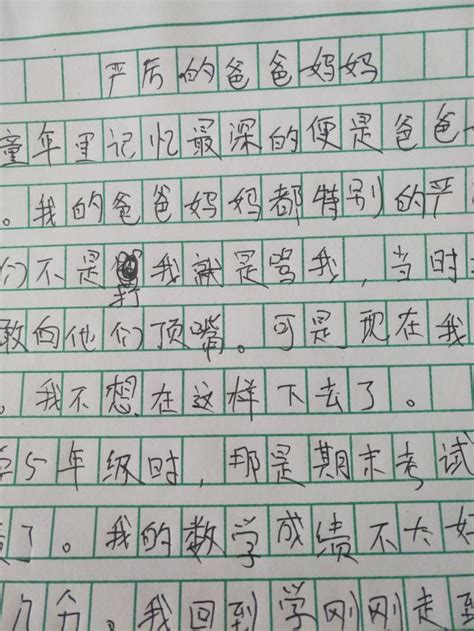 严厉的爸爸妈妈
童年里记忆最深的便是爸爸
。我的爸爸妈妈都特别的严
们不是打我就是骂我，当时
敢向他们顶嘴。可是现在我
。我不想在这样下去了。
学5年级时，那是期末考试
了。我的数学成绩不太好
我回到学刚刚走到